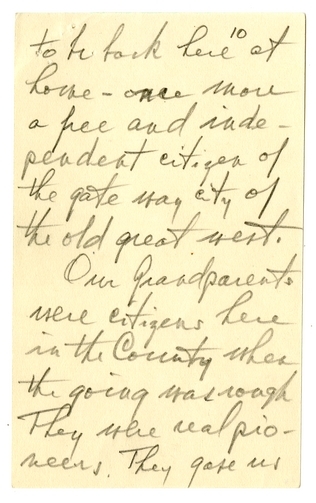 to be back here 10 at
home - once more
a free and inde-
pendent citizen of
the gate way city of
the old great west.
Our Grandparents
were citizens here
in the County when
the going was rough
They were real pio-
neers. They gave us